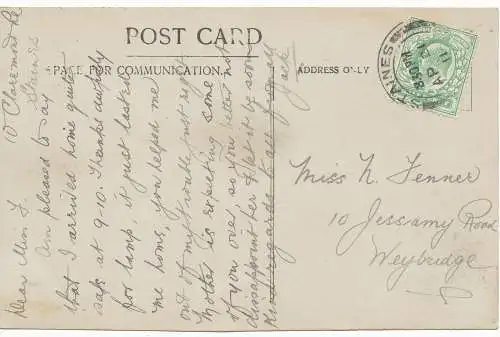 POST CARD
SPACE FOR COMMUNICATION.
ADDRESS ONLY
STAINES
8.30 PM
AP
11
10 Claremont Rd
Staines
Dear Miss F.
Am pleased to say
that I arrived home quite
safe at 9-10. Thanks awfully
for lamp, it just lasted
me home, you helped me
out of my trouble just right
Mother is expecting some
of you over, so you better not
dissappoint her & let it be soon
Kind regards to all from all
Jack
Miss N. Fenner
10 Jessamy Road
Weybridge